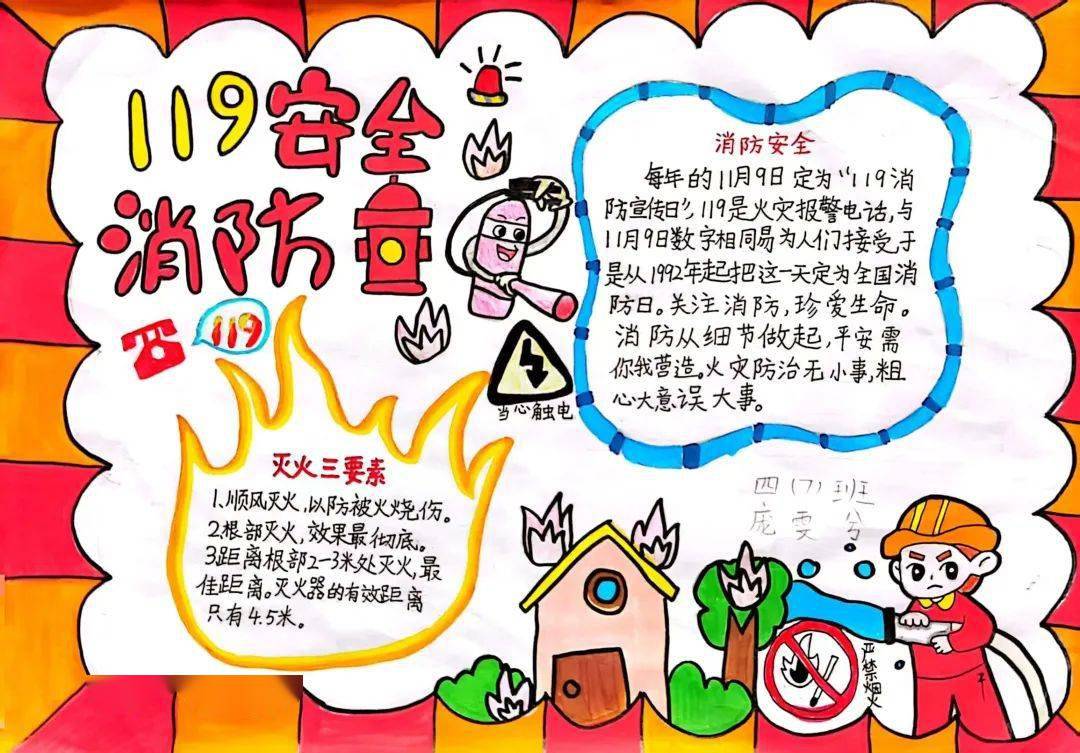 119安全
消防
119
当心触电
消防安全
每年的11月9日定为“119消
防宣传日”，119是火灾报警电话，与
11月9日数字相同易为人们接受，于
是从1992年起把这一天定为全国消
防日。关注消防，珍爱生命。
消防从细节做起，平安需
你我营造。火灾防治无小事，粗
心大意误大事。
灭火三要素
1.顺风灭火，以防被火烧伤。
2.根部灭火，效果最彻底。
3距离根部2-3米处灭火，最
佳距离。灭火器的有效距离
只有4.5米。
四(7)班
庞雯兮
严禁烟火